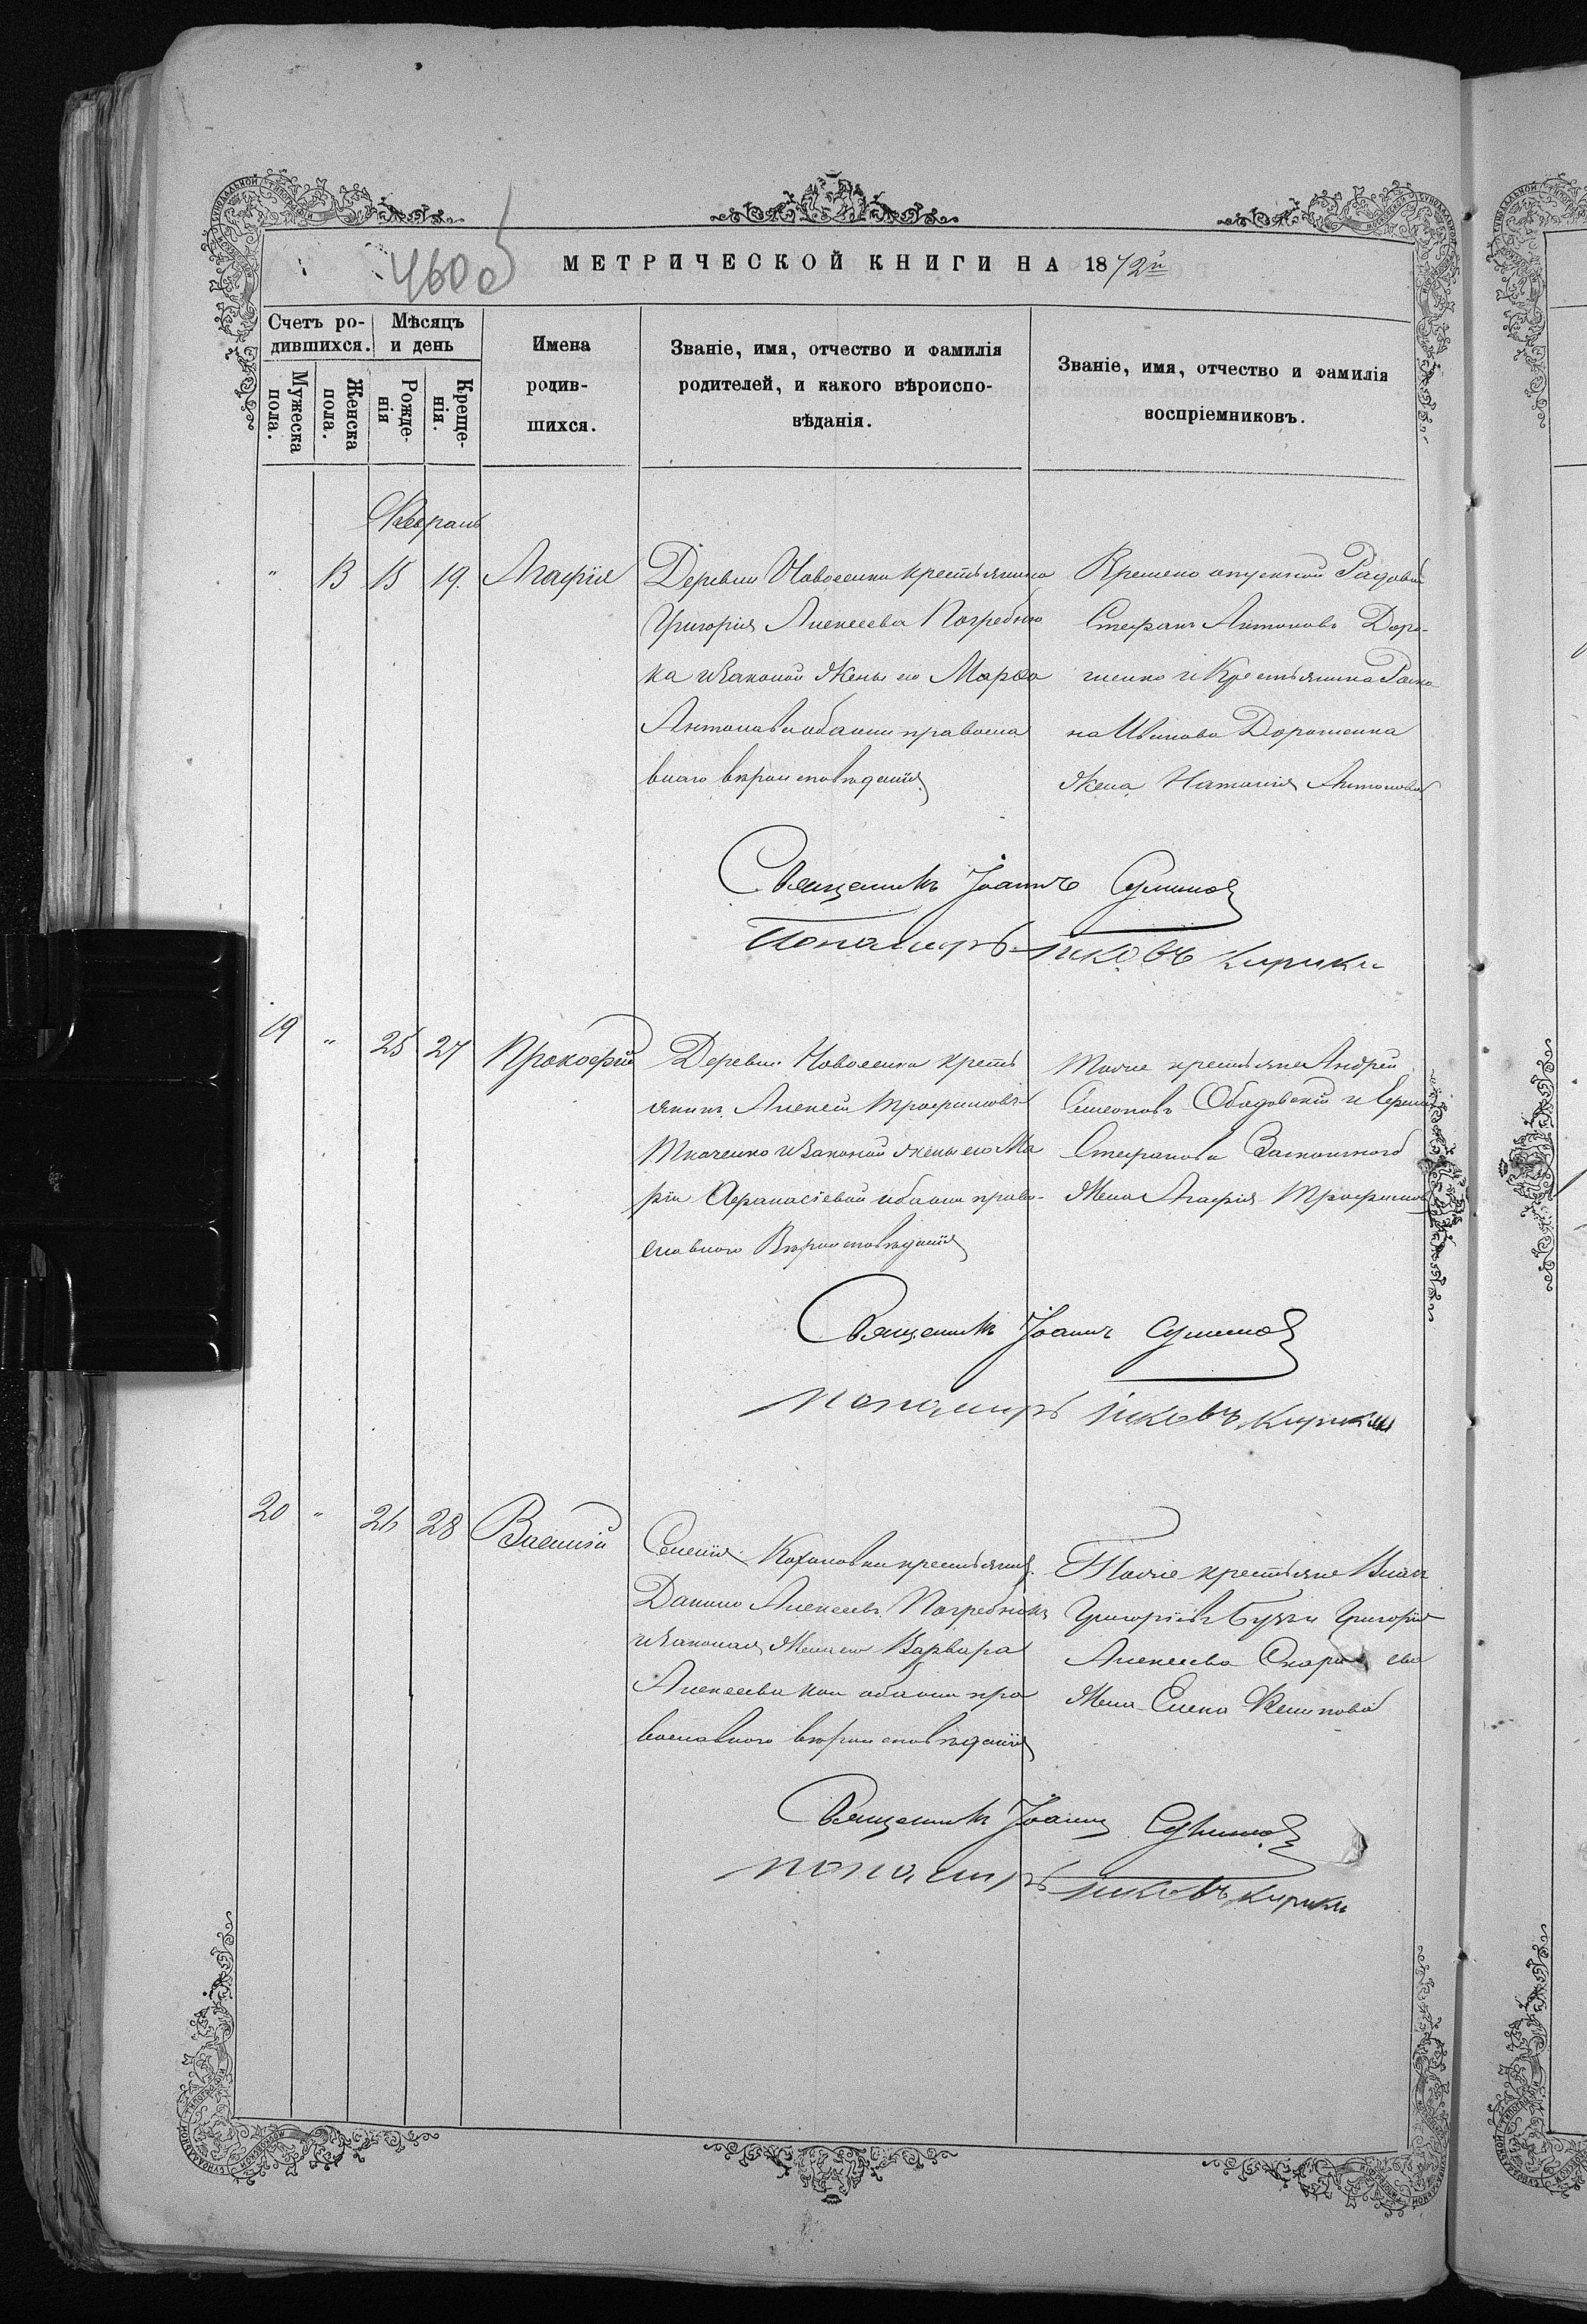 460 об
МЕТРИЧЕСКОЙ КНИГИ НА 1872й
Счетъ ро-
дившихся.
Мужеска
пола.
Женска
пола.
Мѣсяцъ
и день
Рожде-
нія
Креще-
нія.
Имена
родив-
шихся.
Званіе, имя, отчество и фамилія
родителей, и какого вѣроиспо-
вѣданія.
Званіе, имя, отчество и фамилія
воспріемниковъ.
Февраль
" 13 15 19. Агафія
Деревни Новоселки крестьянина
Григорія Алексеева Погребня
ка изаконой жены его Марѳа
Антонова обаони правосла
внаго вероисповѣданія
Времено отпускной Рядовой
Стефанъ Антоновъ Доро-
шенко и Крестьянина
на Иванова Дорошенка
жена Наталия Антонова
Священикъ Іоаннъ
Понамарь яковъ кирики
19 " 25 27 Прокофій
Деревни Новоселки кресть
янинъ Алексей Трофимовъ
Ткаченко изаконой жены его Ма
рии Афанасіевой обаони право-
славного Вероисповѣданія
Тойже крестьяне Андрей
Семеоновъ Ободовскій и
Стефанова
Жена Агафія Трофимова
Священикъ Іоаннъ
понамарь яковъ кирики
20 " 26 28 Василій
Селенія Кохановки крестьянинъ
Данило Алексеевъ Погребнякъ
изаконая Жена его Варвара
Алексеева обаони пра
вославного вероисповѣданія
Тойже крестьяне Иванъ
Григоріевъ Григорія
Алексеева
Жена Елена
Священикъ Іоаннъ
понамарь яковъ кирики